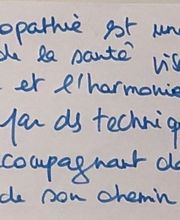 opathie est une
de la santé vis
et l'harmonie
Par ds techniq
ccompagnant da
de son chemin